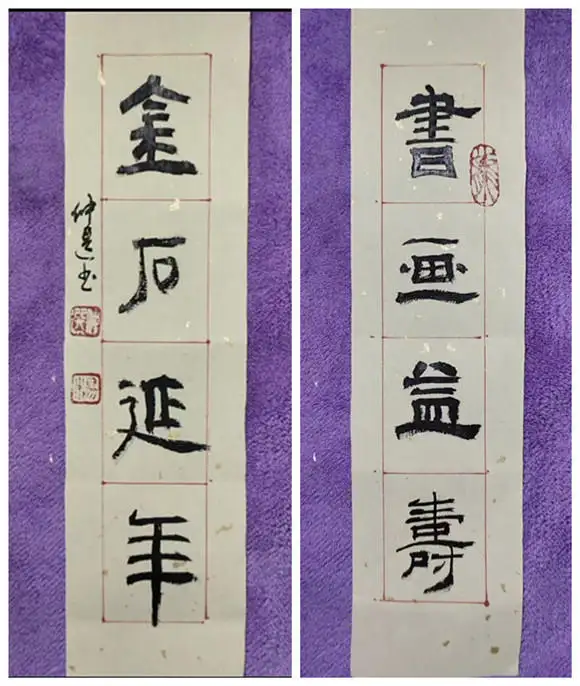 書画益壽
金石延年
仲達书